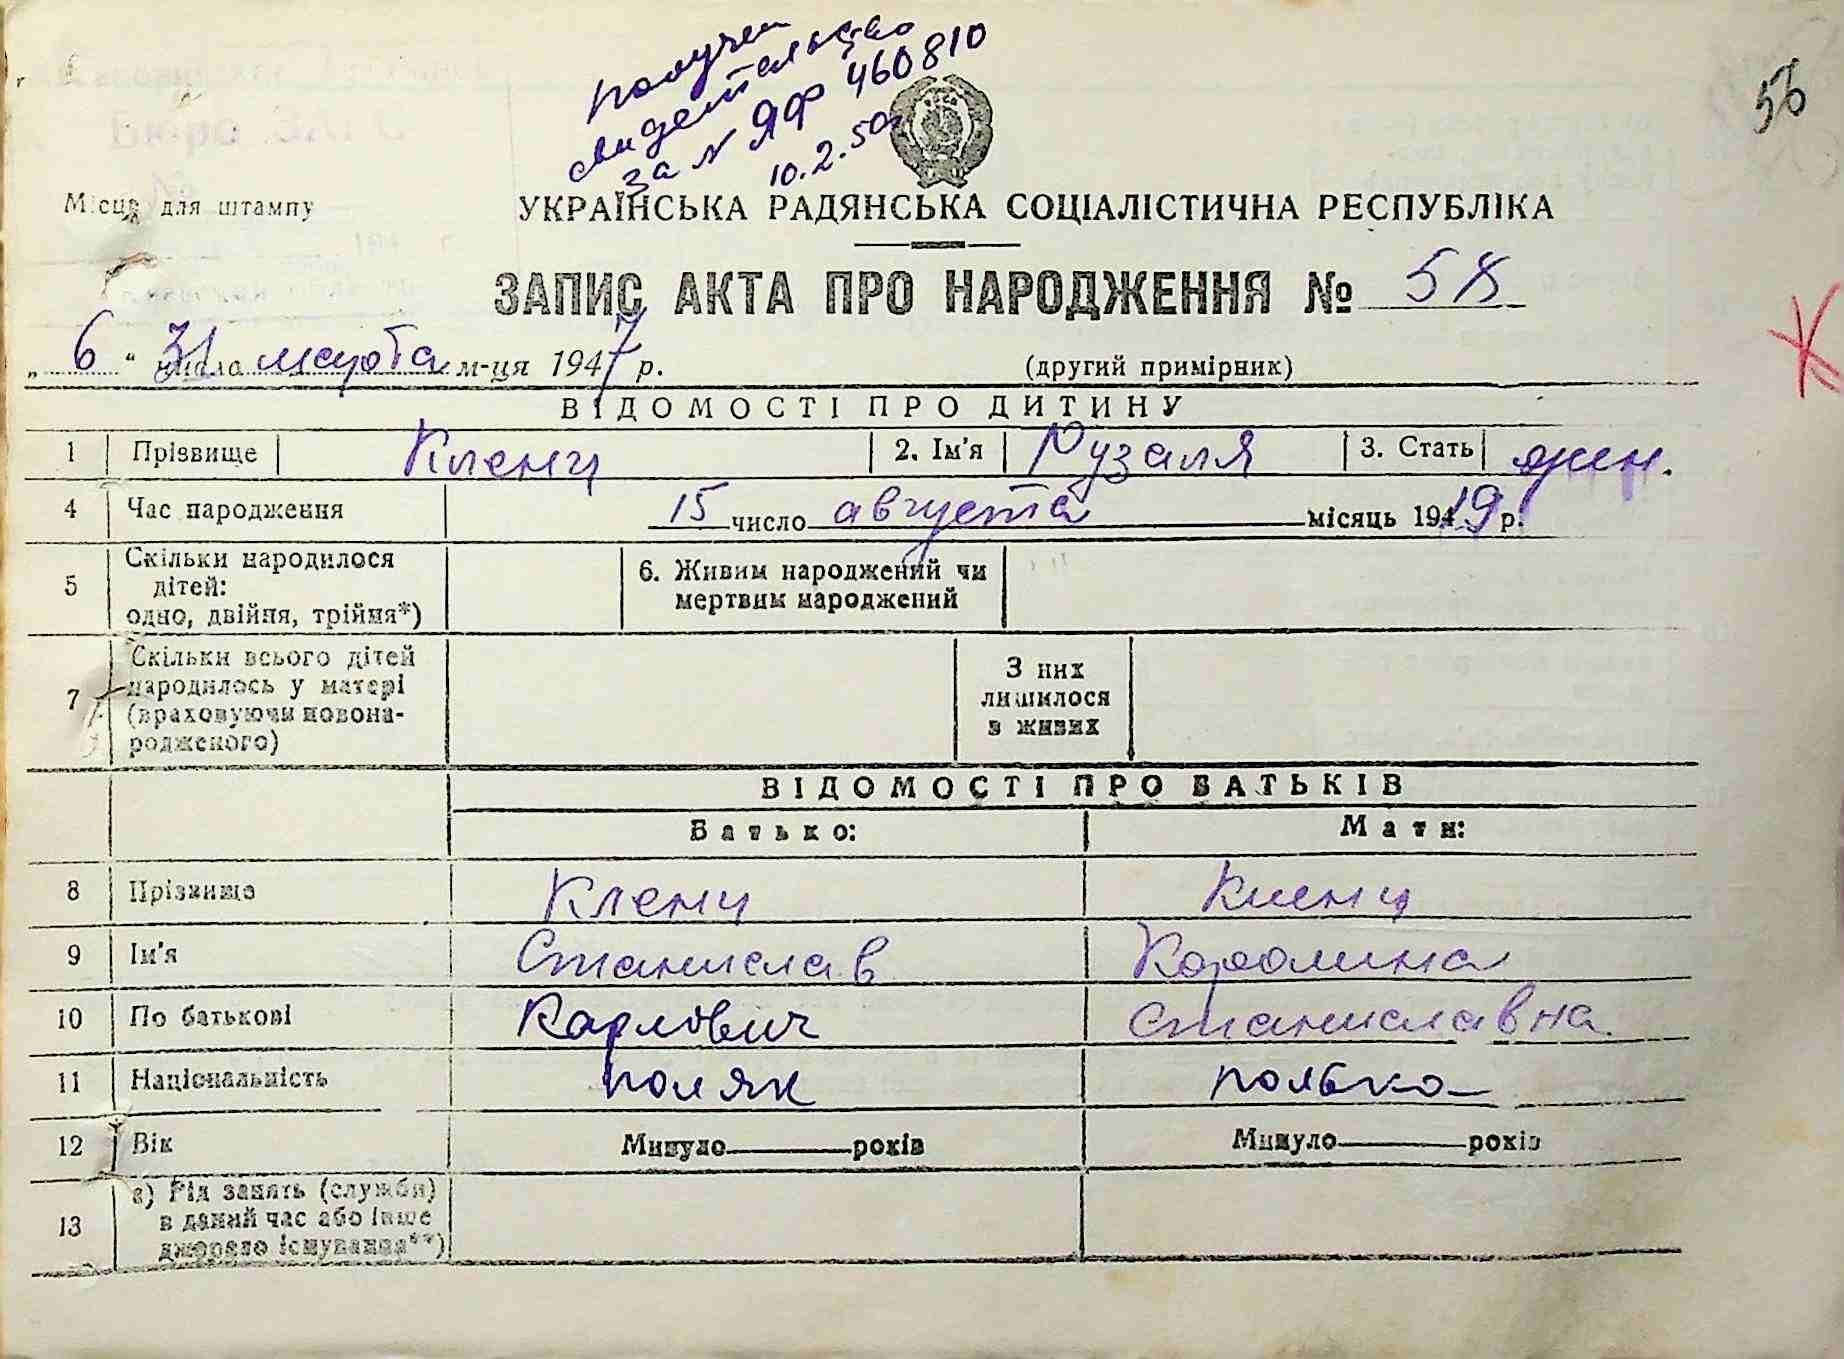 получен
свидетельство
за N ЯФ 460810
10.2.50г
56
Місце для штампу
УКРАЇНСЬКА РАДЯНСЬКА СОЦІАЛІСТИЧНА РЕСПУБЛІКА
ЗАПИС АКТА ПРО НАРОДЖЕННЯ № 58
„ 6 “ 31 числа марта м-ця 1947 р. (другий примірник)
ВІДОМОСТІ ПРО ДИТИНУ
1 Прізвище Кленц 2. Ім'я Рузаля 3. Стать жен.
4 Час народження 15 число августа місяць 19419 р.
5 Скільки народилося дітей: одно, двійня, трійня*) 6. Живим народжений чи мертвим народжений
7 Скільки всього дітей народилось у матері (враховуючи новонародженого) З них лишилося в живих
ВІДОМОСТІ ПРО БАТЬКІВ
Батько: Мати:
8 Прізвище Кленц Кленц
9 Ім'я Станислав Королина
10 По батькові Карлович Станиславвна.
11 Національність поляк полька
12 Вік Минуло років Минуло років
13 а) Рід занять (служби) в даний час або інше джерело існування**)